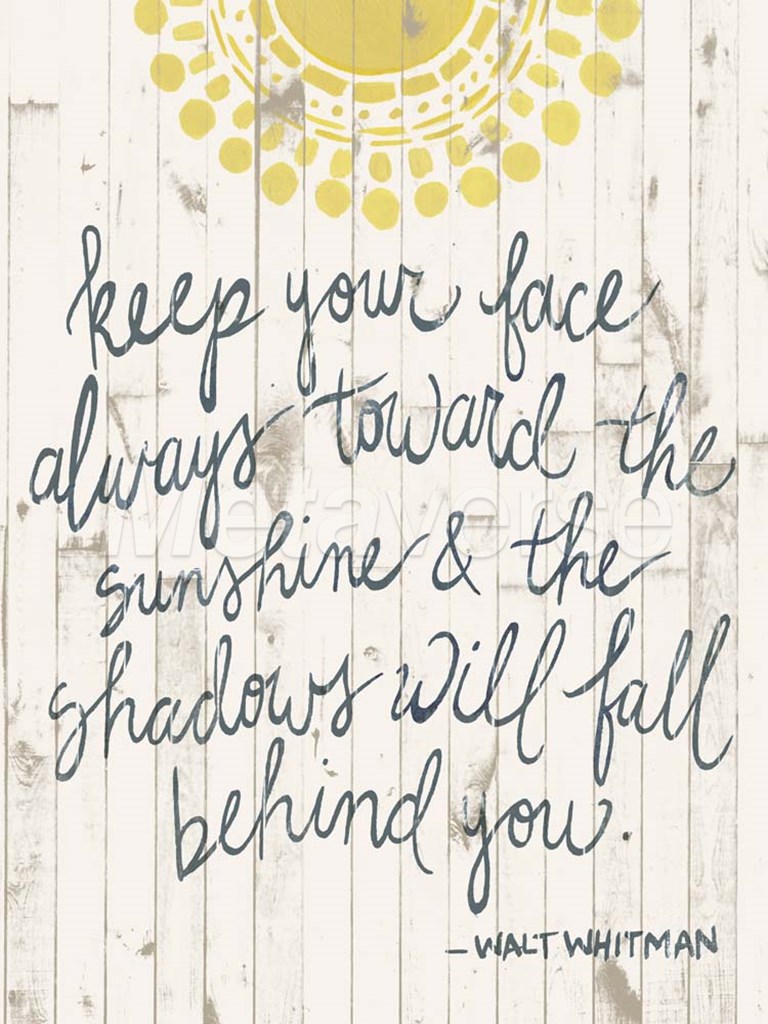 keep your face
always toward the
Metaverse
sunshine & the
shadows will fall
behind you.
– WALT WHITMAN